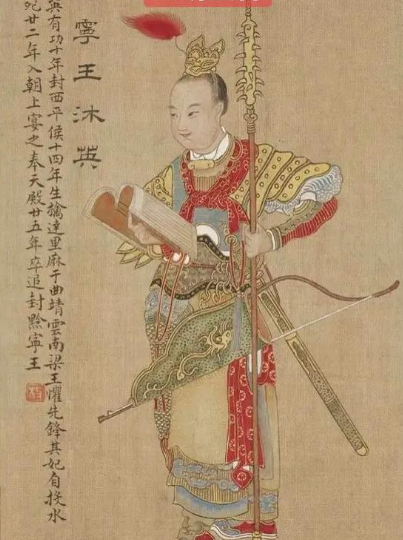 寧王沐英
與有功十年封西平侯十四年生擒達里麻于曲靖雲南梁王懼先鋒其妃自投水
死廿二年入朝上宴之奉天殿廿五年卒追封黔寧王